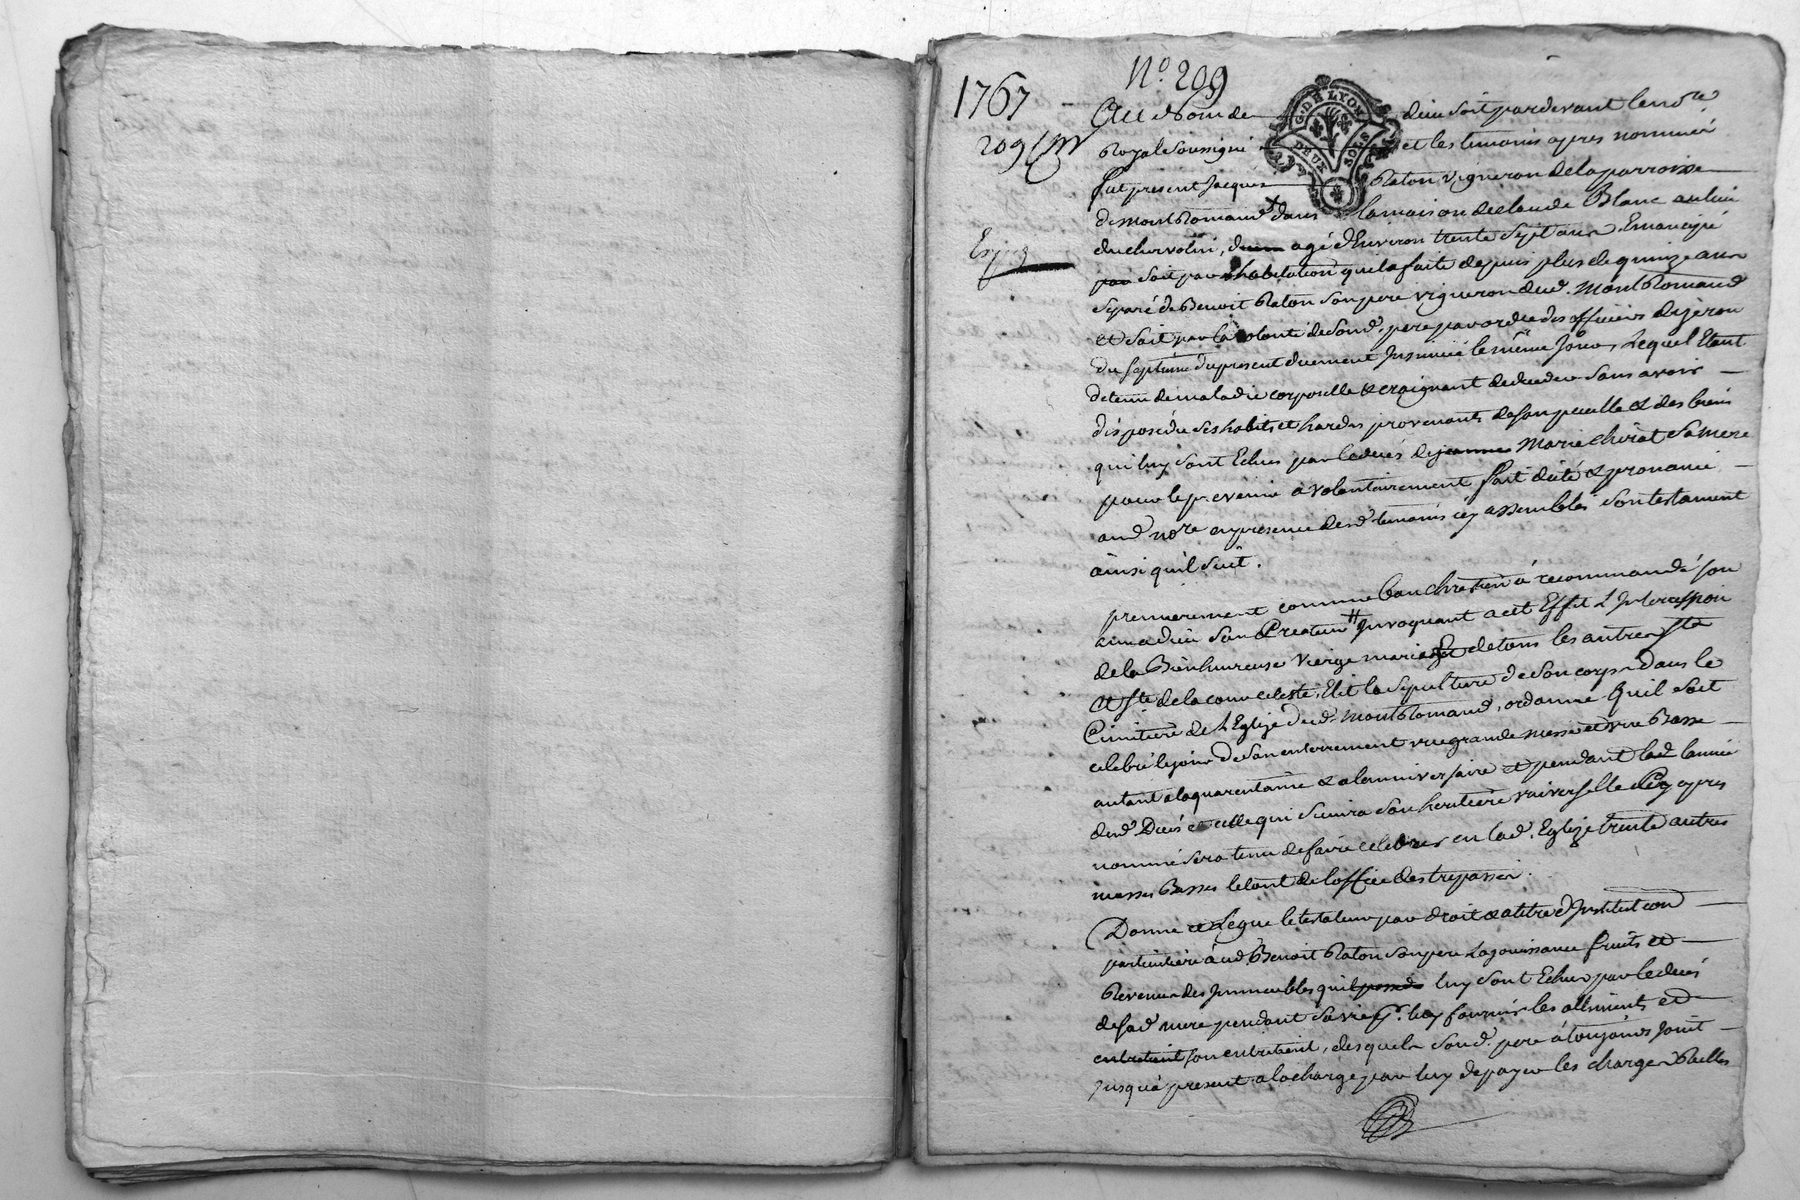 1767
N.o 209
209
G. DE LYON
DEUX SOLS
Au Nom de dieu soit pardevant le no.re
Royal soussigné et les temoins apres nommés
fut present Jacques Raton vigneron de la parroisse
de montRomand dans la maison de claude Blanc au lieu
du chervolin, agé d'Environ trente Sept ans Emancipé
par soit par habitation qu'il a faite depuis plus de quinze ans
separé de Benoit Raton son pere vigneron dud. MontRomand
et soit par la volonté de sond. pere par ordre des officiers
du septieme du present duement Insinué le même Jour, Lequel Etant
detenu de maladie corporelle & craignant de deceder sans avoir
disposé de ses habits et hardes provenants de son peculle & des biens
qui luy sont Echus par le decés de jeanne Marie chirat sa mere
pour le prevenir a volontairement fait dicté & prononcé
aud. no.re en presence desd. temoins icy assemblés son testament
ainsi qu'il suit.
premierement comme bon chrêtien à recommandé son
ame a dieu son Createur Invoquant a cet Effet L'Intercession
de la Bienheureuse Vierge marie et de tous les autres Sts
et Stes de la cour celeste, Elit la sepulture de son corps dans le
Cimitiere de L'Eglize dud. MontRomand, ordonne quil soit
celebré le jour de son enterrement une grande messe et une Basse
autant a la quarantaine & a l'anniversaire et pendant lad. année
dud. Decés celle qui sera son heritiere universelle cy apres
nommé sera tenu de faire celebrer en lad. Eglize trente autres
messes Basses le tout de l'office des trepassés.
Donne et Legue le testateur par droit & a titre d'Institution
particuliere aud. Benoit Raton son pere La jouissance fruits et
Revenus des Immeubles quil luy sont Echus par le decés
de sad. mere pendant sa vie pr. luy fournir les alliments et
entretient son entretient, desquels sond. pere à toujours Jouit
jusqu'a present a la charge par luy de payer les charges Réelles